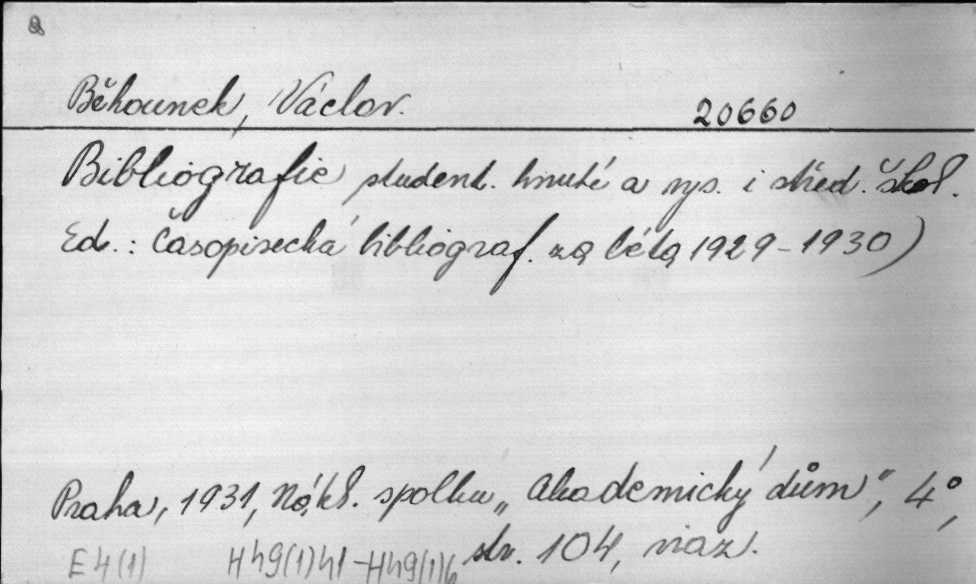 Běhounek, Václav. 20660
Bibliografie student. hnutí a vys. i střed. škol.
Ed.: Časopisecká bibliograf. za léta 1929-1930)
Praha, 1931, Nákl. spolku „Akademický dům", 4°,
str. 104, váz.
E 4(1) H49(1)41-H49(1)6